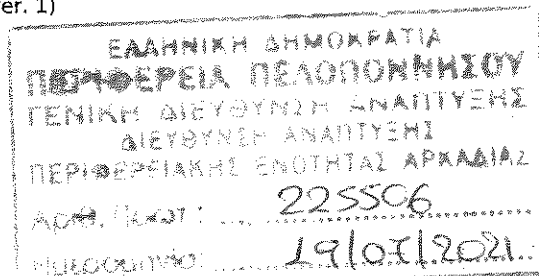 er. 1)
ΕΛΛΗΝΙΚΗ ΔΗΜΟΚΡΑΤΙΑ
ΠΕΡΙΦΕΡΕΙΑ ΠΕΛΟΠΟΝΝΗΣΟΥ
ΓΕΝΙΚΗ ΔΙΕΥΘΥΝΣΗ ΑΝΑΠΤΥΞΗΣ
ΔΙΕΥΘΥΝΣΗ ΑΝΑΠΤΥΞΗΣ
ΠΕΡΙΦΕΡΕΙΑΚΗΣ ΕΝΟΤΗΤΑΣ ΑΡΚΑΔΙΑΣ
Αριθ. Πρωτ: 225506
Ημερομηνία: 19/07/2021